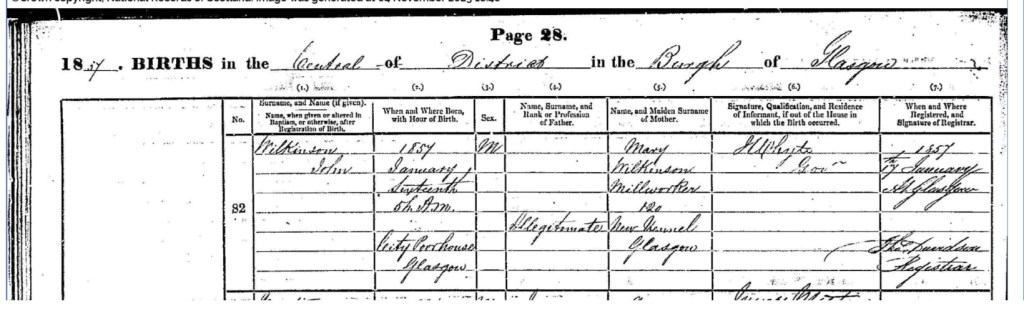 Page 28.
1857. BIRTHS in the Central of District in the Burgh of Glasgow
(1.) (2.) (3.) (4.) (5.) (6.) (7.)
No.
Surname, and Name (if given).
Name, when given or altered in
Baptism, or otherwise, after
Registration of Birth.
When and Where Born,
with Hour of Birth.
Sex.
Name, Surname, and
Rank or Profession
of Father.
Name, and Maiden Surname
of Mother.
Signature, Qualification, and Residence
of Informant, if out of the House in
which the Birth occurred.
When and Where
Registered, and
Signature of Registrar.
82
Wilkinson
John
1857
January
Sixteenth
5h. A.M.
City Poorhouse
Glasgow
M
Illegitimate
Mary
Wilkinson
Millworker
120
New Vennel
Glasgow
Gov^r
1857
17th January
At Glasgow
Davidson
Registrar